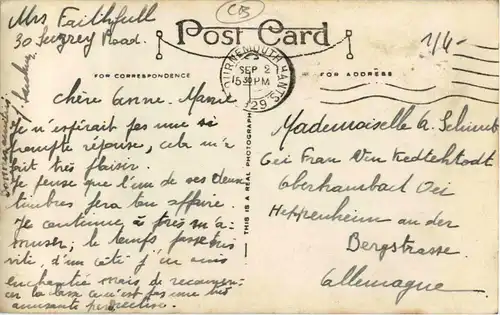 Mrs Faithfull
30 Surrey Road.
CB
Post Card
1/4-
BOURNEMOUTH HANTS
SEP 2
5 30 PM
29
FOR CORRESPONDENCE
FOR ADDRESS
THIS IS A REAL PHOTOGRAPH
Chère Anne-Marie
Je n'espérait pas une si
prompte réponse, cela m'a
fait très plaisir.
Je pense que l'un de ses deux
timbres fera ton affaire.
Je continue à très m'a-
muser; le temps passe très
vite, d'un côté j'en suis
enchantée mais de recommen-
cer la classe ce n'est pas une très
amusante perspective.
Mademoiselle A. Schmidt
bei Frau Von
Oberhambach bei
Heppenheim an der
Bergstrasse.
Allemagne.